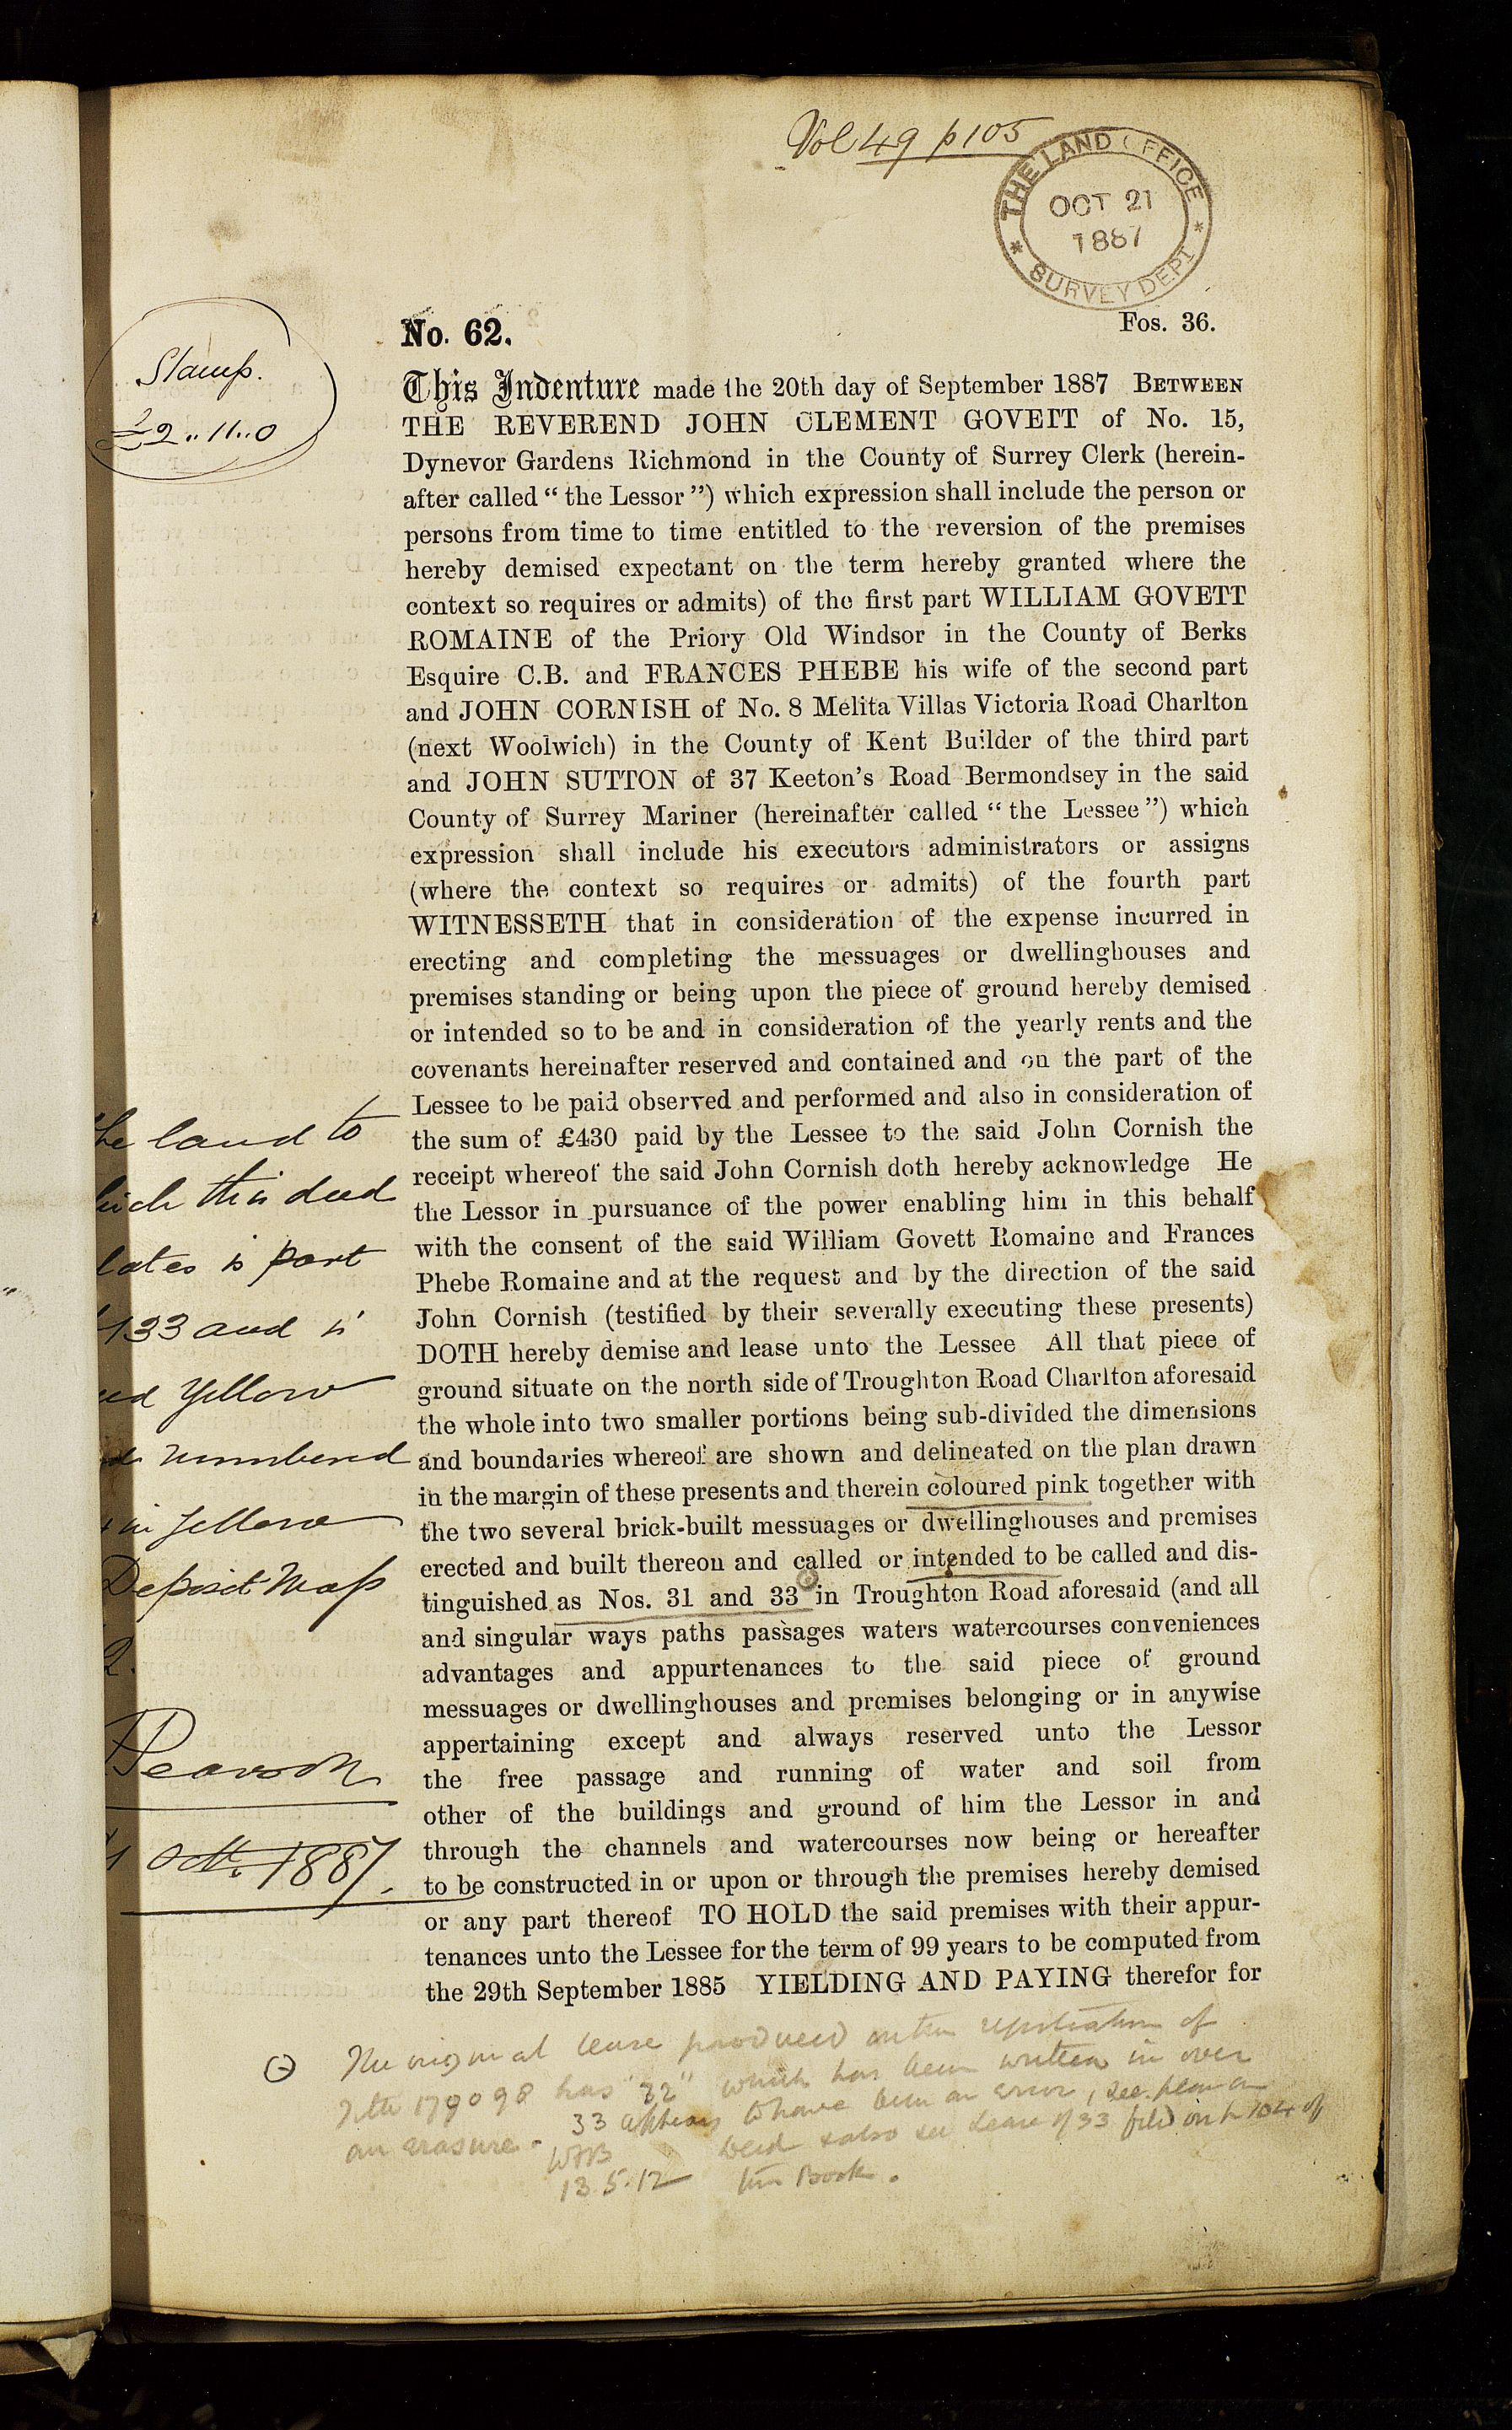 Vol 49 p 105
THE LAND OFFICE
OCT 21
1887
* SURVEY DEPT *
No. 62.
Fos. 36.
Stamp.
£2..11..0
This Indenture made the 20th day of September 1887 BETWEEN
THE REVEREND JOHN CLEMENT GOVETT of No. 15,
Dynevor Gardens Richmond in the County of Surrey Clerk (herein-
after called “ the Lessor ”) which expression shall include the person or
persons from time to time entitled to the reversion of the premises
hereby demised expectant on the term hereby granted where the
context so requires or admits) of the first part WILLIAM GOVETT
ROMAINE of the Priory Old Windsor in the County of Berks
Esquire C.B. and FRANCES PHEBE his wife of the second part
and JOHN CORNISH of No. 8 Melita Villas Victoria Road Charlton
(next Woolwich) in the County of Kent Builder of the third part
and JOHN SUTTON of 37 Keeton's Road Bermondsey in the said
County of Surrey Mariner (hereinafter called “ the Lessee ”) which
expression shall include his executors administrators or assigns
(where the context so requires or admits) of the fourth part
WITNESSETH that in consideration of the expense incurred in
erecting and completing the messuages or dwellinghouses and
premises standing or being upon the piece of ground hereby demised
or intended so to be and in consideration of the yearly rents and the
covenants hereinafter reserved and contained and on the part of the
Lessee to be paid observed and performed and also in consideration of
the sum of £430 paid by the Lessee to the said John Cornish the
receipt whereof the said John Cornish doth hereby acknowledge He
the Lessor in pursuance of the power enabling him in this behalf
with the consent of the said William Govett Romaine and Frances
Phebe Romaine and at the request and by the direction of the said
John Cornish (testified by their severally executing these presents)
DOTH hereby demise and lease unto the Lessee All that piece of
ground situate on the north side of Troughton Road Charlton aforesaid
the whole into two smaller portions being sub-divided the dimensions
and boundaries whereof are shown and delineated on the plan drawn
in the margin of these presents and therein coloured pink together with
the two several brick-built messuages or dwellinghouses and premises
erected and built thereon and called or intended to be called and dis-
tinguished as Nos. 31 and 33 in Troughton Road aforesaid (and all
and singular ways paths passages waters watercourses conveniences
advantages and appurtenances to the said piece of ground
messuages or dwellinghouses and premises belonging or in anywise
appertaining except and always reserved unto the Lessor
the free passage and running of water and soil from
other of the buildings and ground of him the Lessor in and
through the channels and watercourses now being or hereafter
to be constructed in or upon or through the premises hereby demised
or any part thereof TO HOLD the said premises with their appur-
tenances unto the Lessee for the term of 99 years to be computed from
the 29th September 1885 YIELDING AND PAYING therefor for
he land to
hich this deed
lates is part
133 and is
ed Yellow
numbered
in Yellow
Deposit Map
2.
Pearson
Oct. 1887.
The original lease produced on the registration of
title 179098 has "32" which has been written in over
an erasure - 33 appears to have been an error, see plan on
WHB deed & also see Lease of 33 filed on p 104 of
13.5.12 this Book.